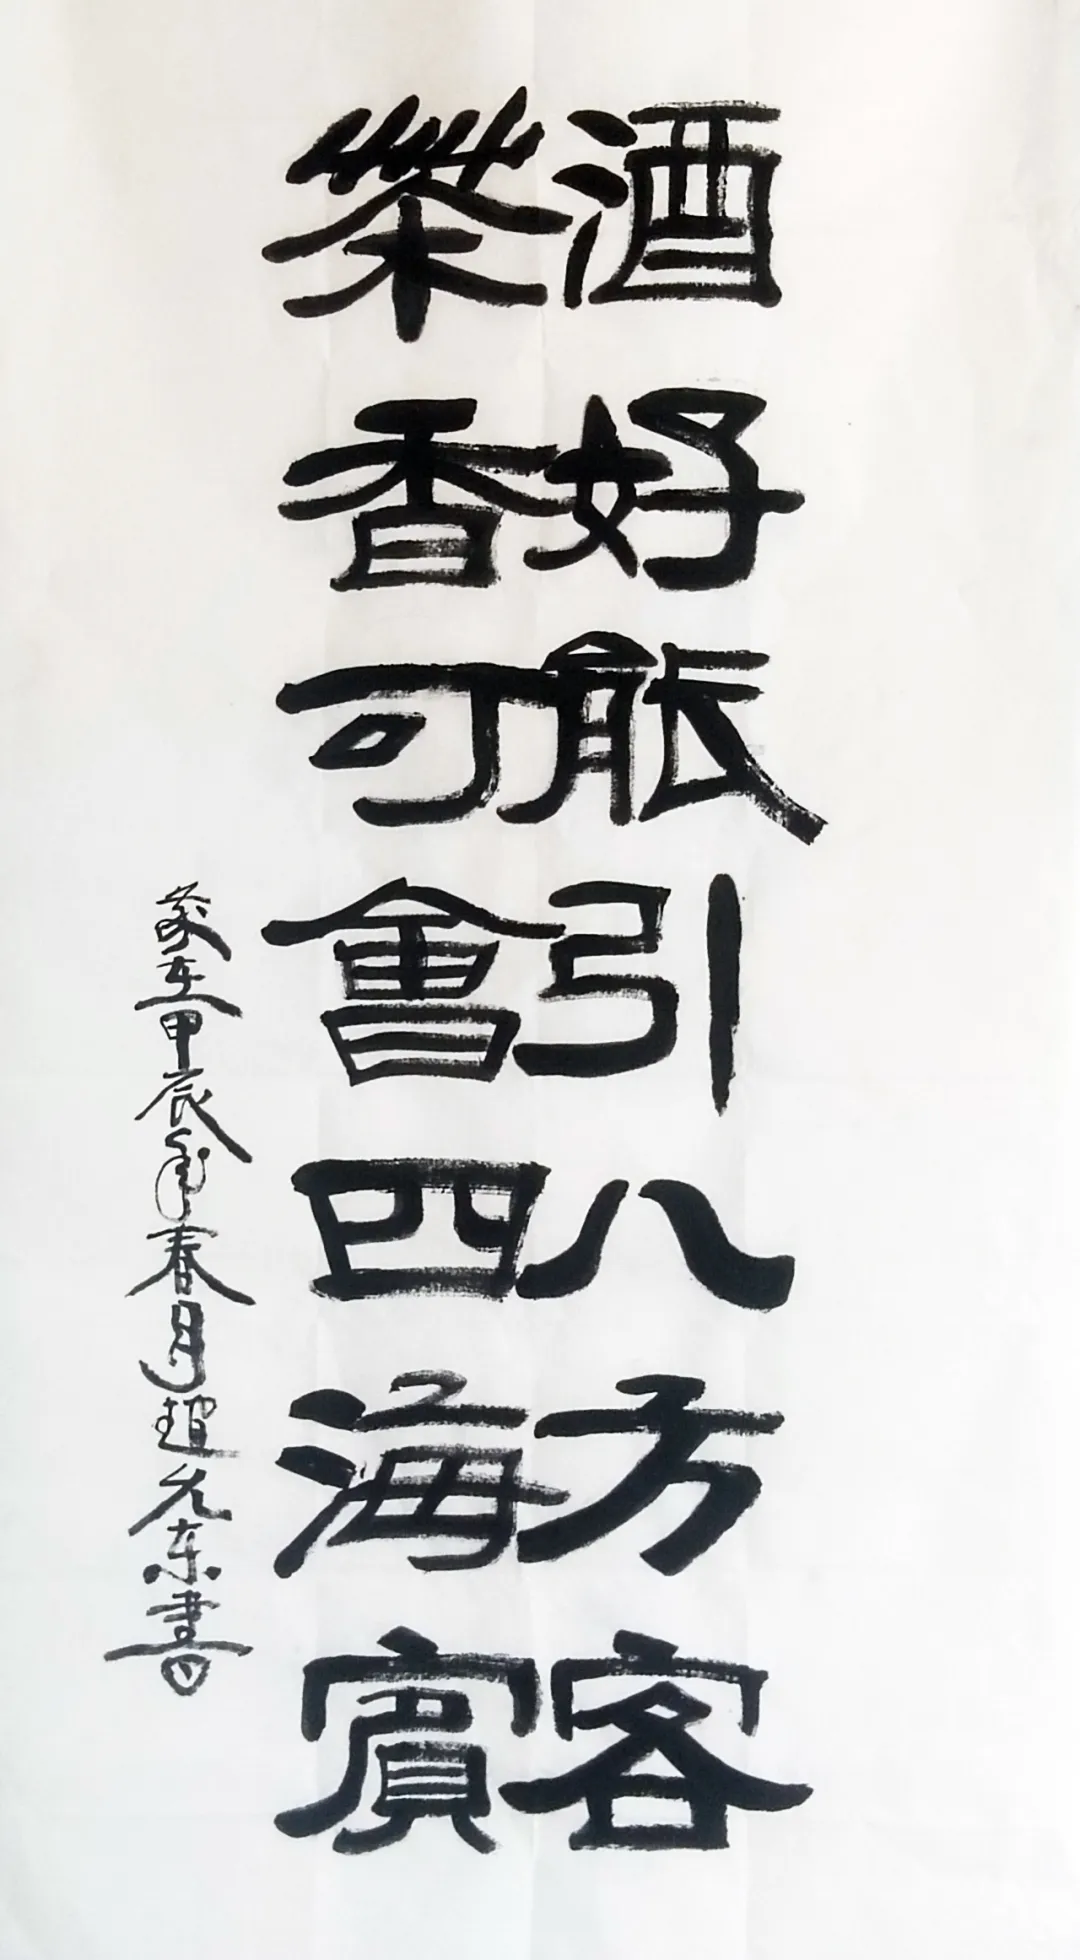 酒好能引八方客
茶香可會四海賓
歲在甲辰年春月趙允東書